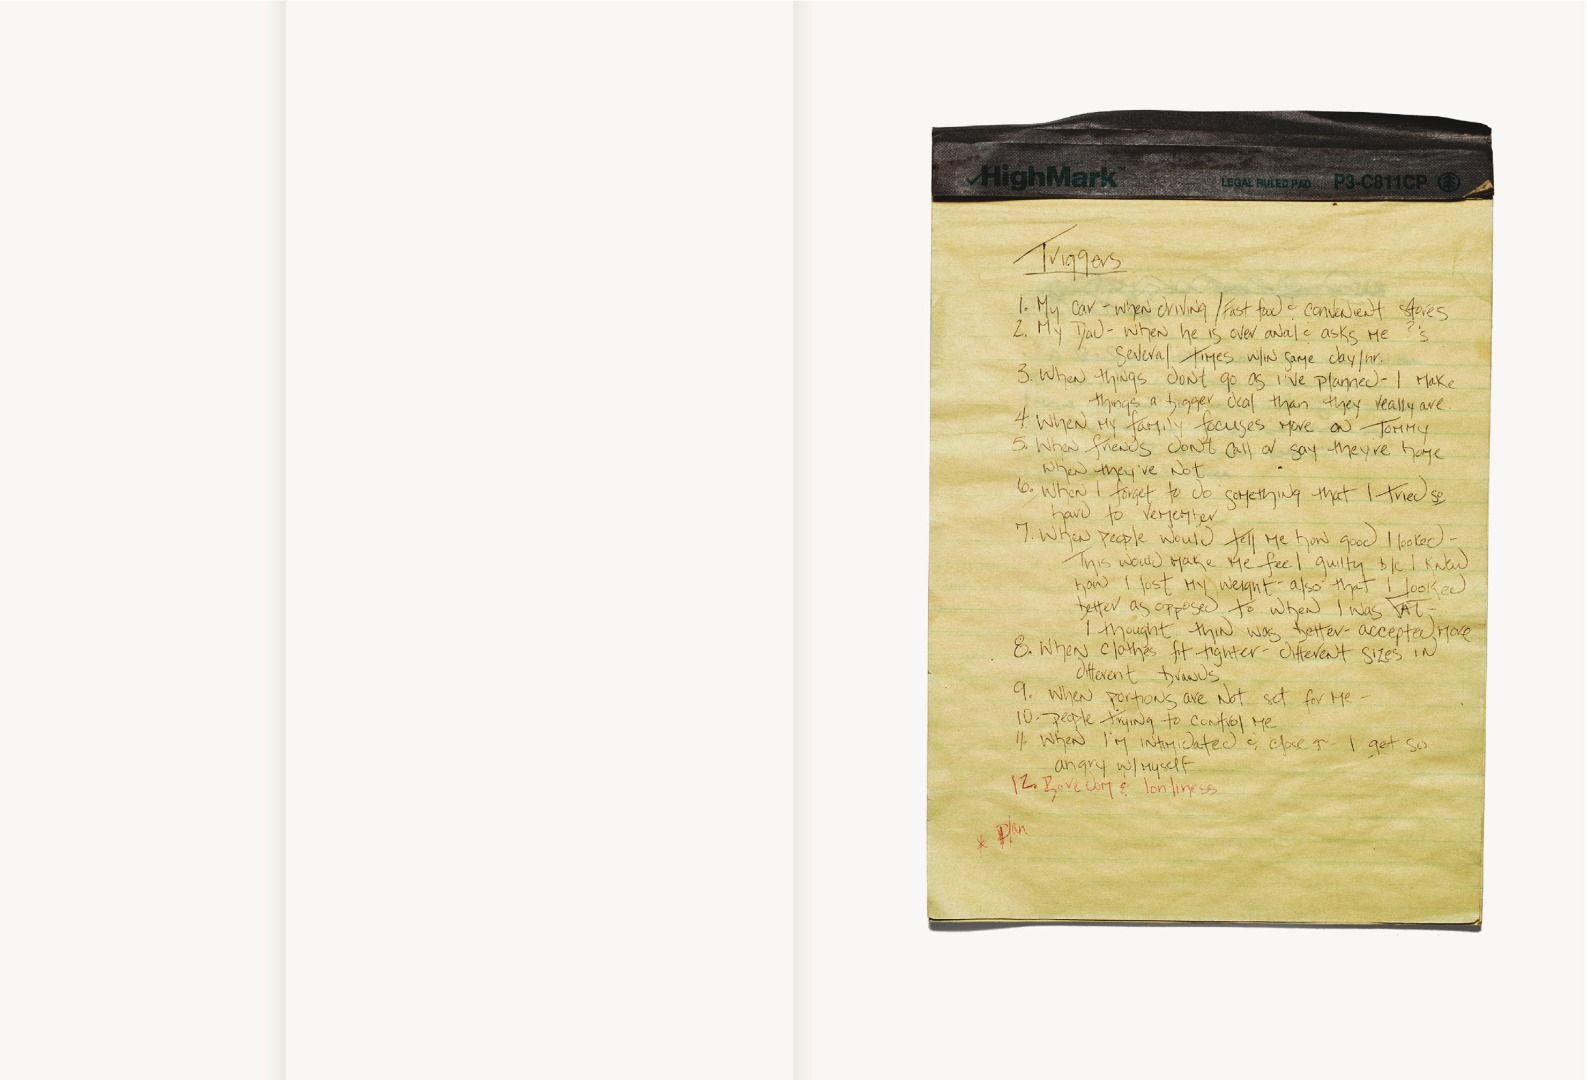 ✓HighMark™ LEGAL RULED PAD P3-C811CP
Triggers
1. My car - when driving / Fast food & convenient stores
2. My Dad - when he is over anal & asks me ?'s
several times w/in same day/hr.
3. When things don't go as I've planned - I make
things a bigger deal than they really are.
4. When my family focuses more on Tommy
5. When friends don't call or say they're home
when they're not
6. When I forget to do something that I tried so
hard to remember
7. When people would tell me how good I looked -
This would make me feel guilty b/c I knew
how I lost my weight - also that I looked
better as opposed to when I was FAT -
I thought thin was better - accepted more
8. When clothes fit tighter - different sizes in
different brands
9. When portions are not set for me -
10. people trying to control me
11. When I'm intimidated & close ↑ - I get so
angry w/ myself
12. Boredom & lonliness
* Plan